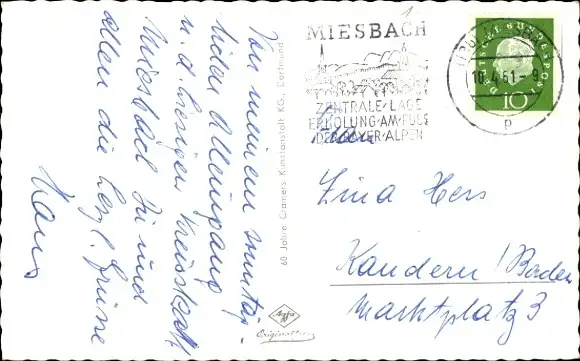 Von meinem sonntäg-
lichen Alleingang
n. d. hiesigen Kreisstadt
Miesbach Dir und
allen die herzl. Grüsse
Hans
60 Jahre Cramers Kunstanstalt KG., Dortmund
Agfa
Original
MIESBACH
ZENTRALE LAGE
ERHOLUNG AM FUSS
DER BAYER. ALPEN
10.4.61-9
p
DEUTSCHE BUNDESPOST
10
Lina Hers
Kandern / Baden
Marktplatz 3